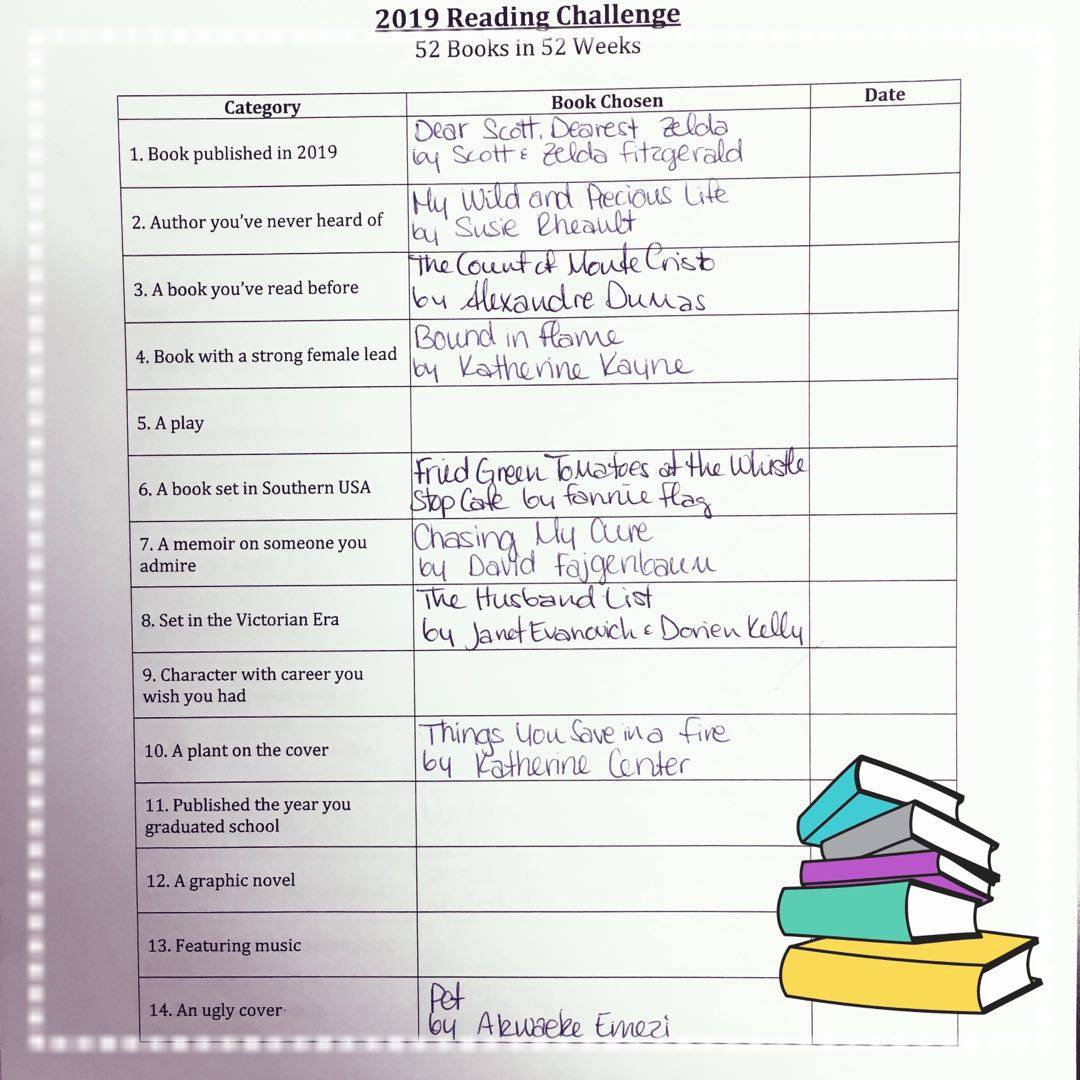 2019 Reading Challenge
52 Books in 52 Weeks
Category Book Chosen Date
1. Book published in 2019
Dear Scott, Dearest Zelda
by Scott & Zelda Fitzgerald
2. Author you've never heard of
My Wild and Precious Life
by Susie Rheault
3. A book you've read before
The Count of Monte Cristo
by Alexandre Dumas
4. Book with a strong female lead
Bound in flame
by Katherine Kayne
5. A play
6. A book set in Southern USA
Fried Green Tomatoes at the Whistle
Stop Cafe by Fannie Flag
7. A memoir on someone you
admire
Chasing My Cure
by David Fajgenbaum
8. Set in the Victorian Era
The Husband List
by Janet Evanovich & Dorien Kelly
9. Character with career you
wish you had
10. A plant on the cover
Things You Save in a Fire
by Katherine Center
11. Published the year you
graduated school
12. A graphic novel
13. Featuring music
14. An ugly cover
Pet
by Akwaeke Emezi